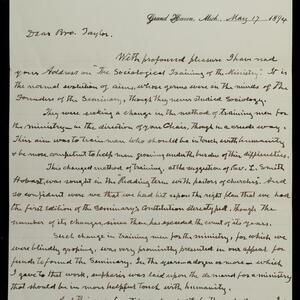 Grand Haven, Mich., May 17 1894
Dear Bro. Taylor.
With profound pleasure I have read
your Address on "The Sociological Training of the Ministry". It
is the normal evolution of aims, whose germs were in the minds of The
Founders of the Seminary, though they never studied Sociology.
They were seeking a change in the method of training men for
the ministry in the direction of your Chair, though in a crude way.
The aim was to train men who should be in touch with humanity
be more competent to help men groaning under the burden of their difficulties.
This changed method of training, at the suggestion of Rev. L. Smith
Hobart, was sought in the Reading Term with pastors of churches.
And so confident were we that we had hit upon the right plan that we had
the first edition of the Seminary's Constitution stereotyped, though the
number of its changes, since then, has exceeded the count of its years.
Such change in training men for the ministry, for which, we
were blindly groping, was very prominently presented in our appeal for
funds to found the Seminary. In the year and a year or more which
I gave to that work, emphasis was laid upon the demand for a ministry
that should be in more helpful touch with humanity.